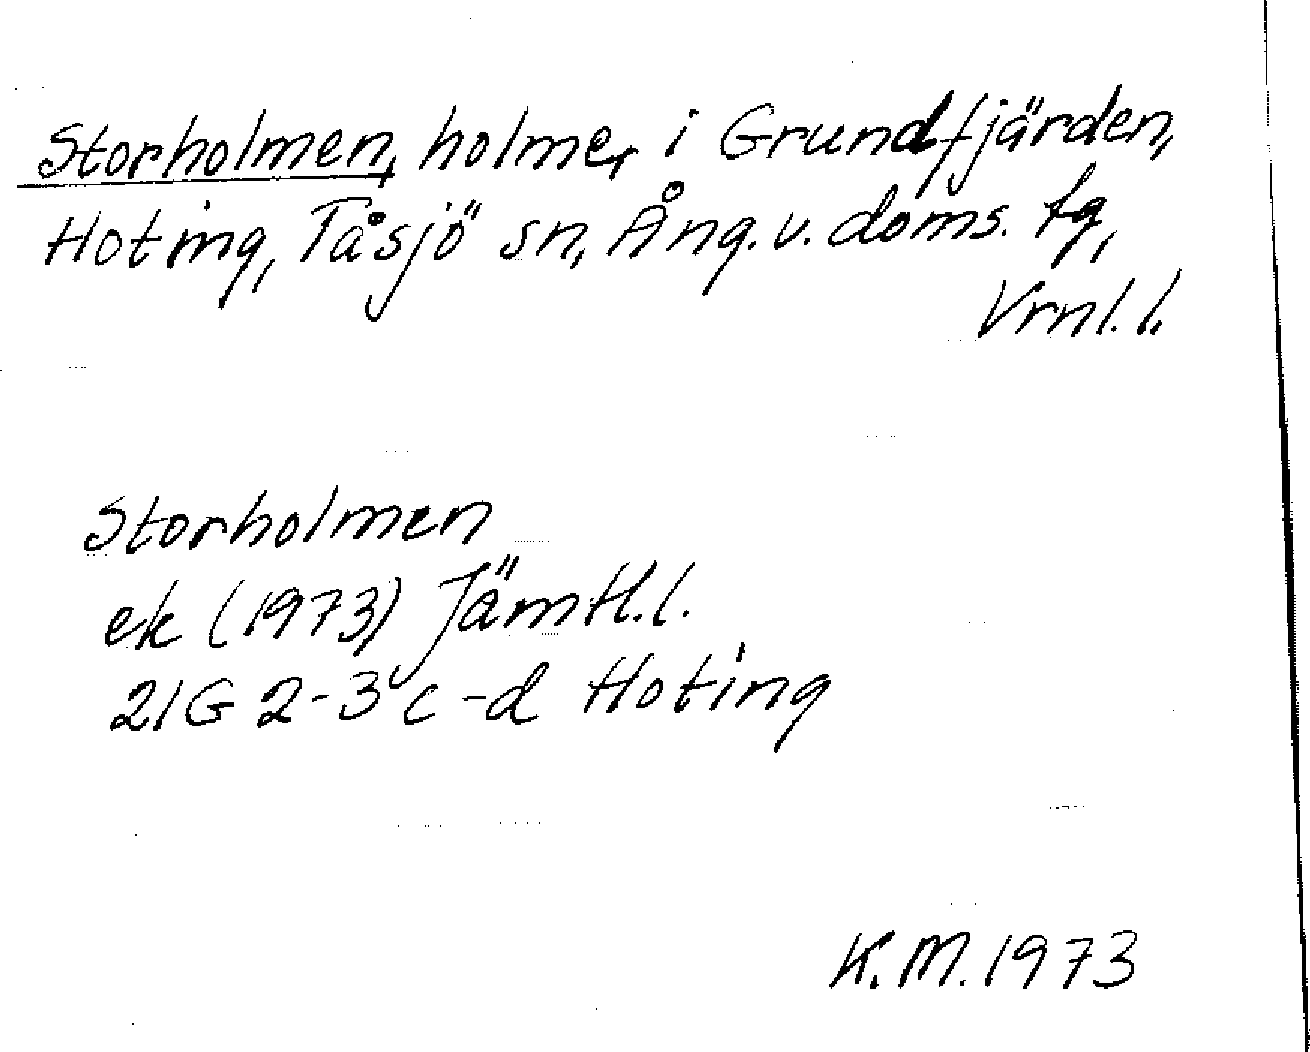 Storholmen, holme, i Grundfjärden,
Hoting, Tåsjö sn, Ång.v. doms. tg,
Vrnl. l.
Storholmen
ek (1973) Jämtl.l.
21G 2-3 c-d Hoting
K.M. 1973